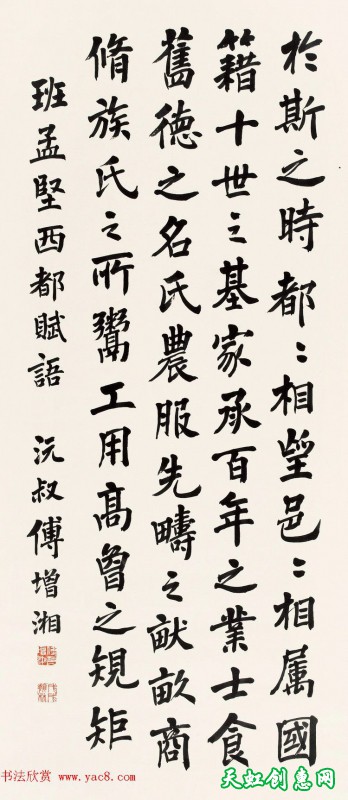 於斯之時都〻相望邑〻相属國
籍十世之基家承百年之業士食
舊德之名氏農服先疇之畎畝商
脩族氏之所鬻工用高曾之規矩
班孟堅西都賦語 沅叔傅增湘
书法欣赏 www.yac8.com
天虹创惠网